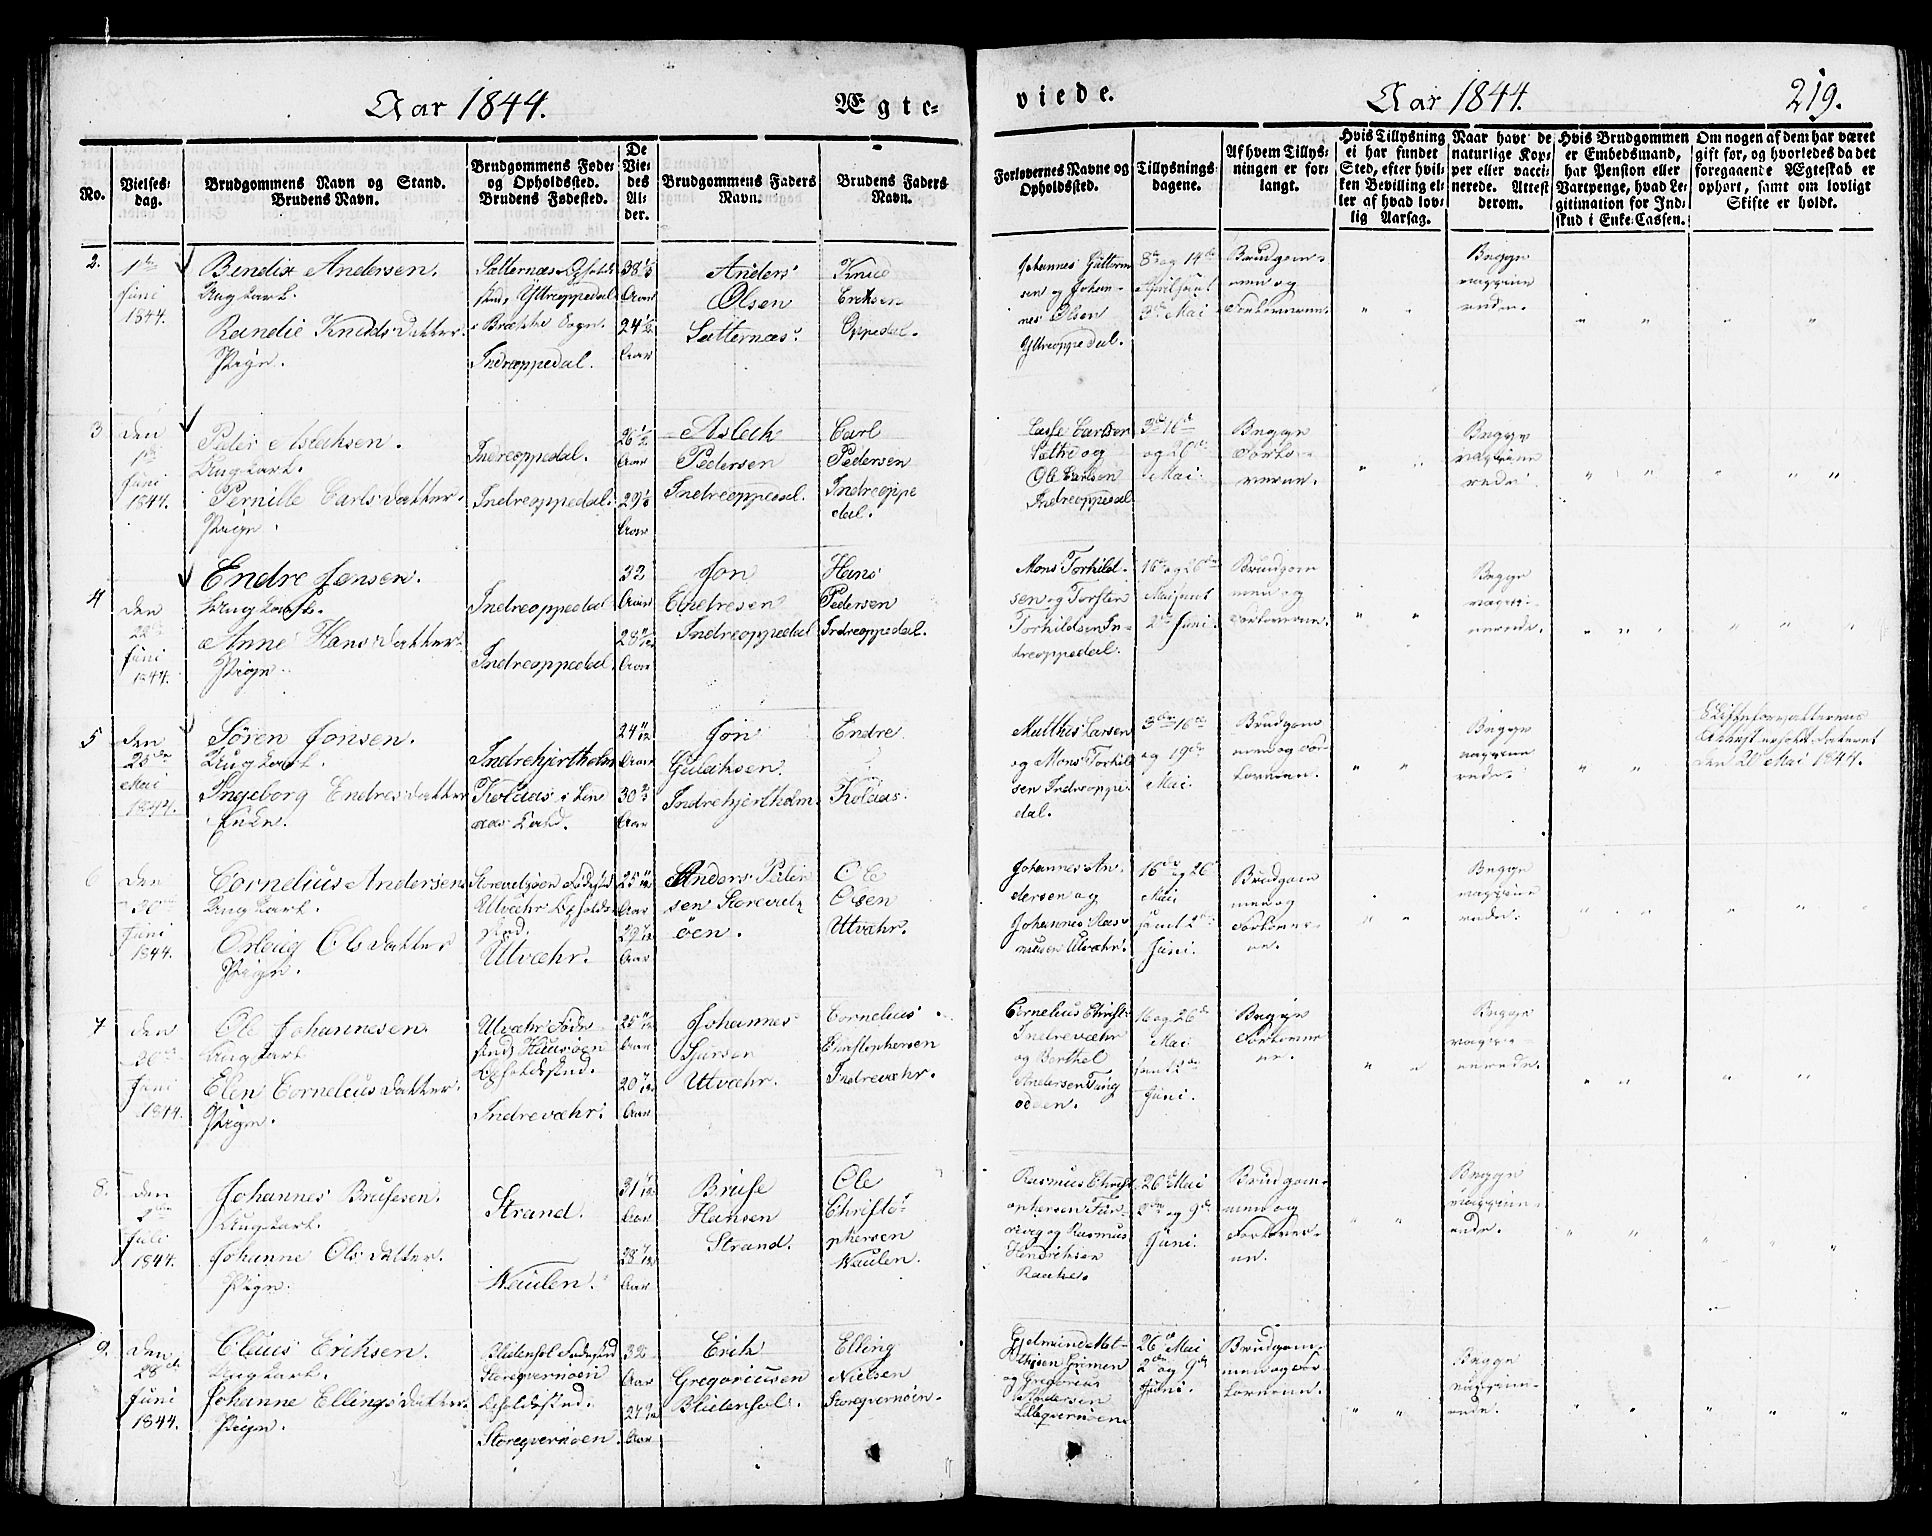 Aar 1844.
Ægte-
viede.
Aar 1844.
219.
No.
Vielses-
dag.
Brudgommens Navn og Stand.
Brudens Navn.
Brudgommens Føde-
og Opholdssted.
Brudens Fødested.
De
Vie-
des
Al-
der.
Brudgommens Faders
Navn.
Brudens Faders
Navn.
Forlovernes Navne og
Opholdssted.
Tillysnings-
dagene.
Af hvem Tillys-
ningen er for-
langt.
Hvis Tillysning
ei har fundet
Sted, efter hvil-
ken Bevilling el-
ler af hvad lov-
lig Aarsag.
Naar havt de
naturlige Kop-
per eller vacci-
nerede. Attest
derom.
Hvis Brudgommen
er Embedsmand,
har Pension eller
Vartpenge, hvad Le-
gitimation for Ind-
skud i Enke-Cassen.
Om nogen af dem har været
gift før, og hvorledes da det
foregaaende Ægteskab er
ophørt, samt om lovligt
Skifte er holdt.
2.
1ste
Juni
1844.
Bendix Andersen.
Ungkarl.
Randie Knudsdatter.
Pige.
Sætternæs Opholds-
sted, Yttreoppedal
Brække Sogn.
Indreoppedal.
38 1/3
Aar
24 1/2
Aar
Anders
Olsen
Sætternæs.
Knud
Eriksen
Oppedal.
Johannes
sen og Johan-
nes Olsen
Yttreoppedal.
8de og 14de
April samt
3die Mai
Brudgom-
men og
Forloverne.
Begge
vaccine-
rede.
3
den
1ste
Juni
1844.
Peder Aslaksen.
Ungkarl.
Pernille Carlsdatter.
Pige.
Indreoppedal.
Indreoppedal.
26 1/2
Aar
29 1/3
Aar
Aslak
Pedersen
Indreoppedal.
Carl
Pedersen
Indreoppe
dal.
Lasse Carlsen
og
Ole Carlsen
Indreoppedal
3die 16de
og 26de
Mai.
Begge
Forlo-
verne.
Begge
vaccine
rede.
4
den
22de
Juni
1844.
Endre Jonsen.
Ungkarl.
Anne Hansdatter.
Pige.
Indreoppedal
Indreoppedal.
32
Aar
28 11/12
Aar
Jon
Endresen
Indreoppedal
Hans
Pedersen
Indreoppedal.
Mons Torkild-
sen og Torsten
Torkildsen In-
dreoppedal.
16de og 26de
Mai samt
2den Juni.
Brudgom
men og
Forloverne.
Begge
vacci-
nerede.
5
den
25de
Mai
1844.
Søren Jonsen.
Ungkarl.
Ingeborg Endresdatter
Enke.
Indrehjertholm
Kolaas i Lin-
aas Sogn.
24 11/12
Aar
30 2/3
Aar
Jon
Gulaksen.
Indrehjertholm.
Endre
Kolaas.
Matthis Larsen
og Mons Torkil
sen Indreoppe-
dal.
3die 16de
og 19de
Mai.
Brudgom
men og For-
loverne.
Begge
vaccine
rede.
Skifteforvalterens
Attest dateret
den 20 Mai 1844.
6
den
30te
Juni
1844.
Cornelius Andersen
Ungkarl.
Olsdatter
Pige.
Fødested
Utvæhr Opholds-
sted.
Utvæhr.
25 11/12
Aar
29 1/12
Aar
Anders Peder
sen Storevelt-
öen.
Ole
Olsen
Utvæhr.
Johannes An-
dersen og
Johannes Ras-
musen Utvæhr.
16de og 26
Mai
samt 2den
Juni.
Brudgom
men og
Forlover-
ne.
Begge
vaccine
rede.
7
den
30te
Juni
1844.
Ole Johannesen.
Ungkarl
Elen Corneliusdatter.
Pige.
Utvæhr Føde-
sted, Huusøen
Opholdssted.
Indrevæhr.
25 11/12
Aar
20 11/12
Aar
Johannes
Sjursen
Utvæhr.
Cornelius
Christophersen
Indrevæhr.
Cornelius Christ-
Indrevæhr
og Berthel
Andersen Ting
odden.
16 og 26de
Mai
samt 2den
Juni.
Begge
Forlover
ne.
Begge
vacci-
nerede.
8.
den
Juli
1844.
Johannes Brusesen.
Ungkarl.
Johanne Olsdatter.
Pige.
Strand.
Naulen.
31 1/12
Aar
28 1/12
Aar
Bruse
Hansen
Strand.
Ole
Christo-
phersen
Naulen.
Rasmus Christ-
ophersen
og Rasmus
Hendriksen
26de Mai
2den og 9de
Juni.
Brudgom-
men og
Forlover-
ne.
Begge
vaccine-
rede.
9.
den
28de
Juni
1844.
Claus Eriksen.
Ungkarl.
Johanne Ellingsdatter.
Pige.
Fødested
Storeqvernøen
Opholdssted.
Storeqvernøen.
32
Aar
24
Aar
Erik
Gregoriusen
Elling
Nielsen
Storeqvernøen.
og Gregorius
Andersen
Lilleqvernøen
26de Mai
2den og 9de
Juni.
Brudgom-
men og For-
loverne.
Begge
vaccine-
rede.